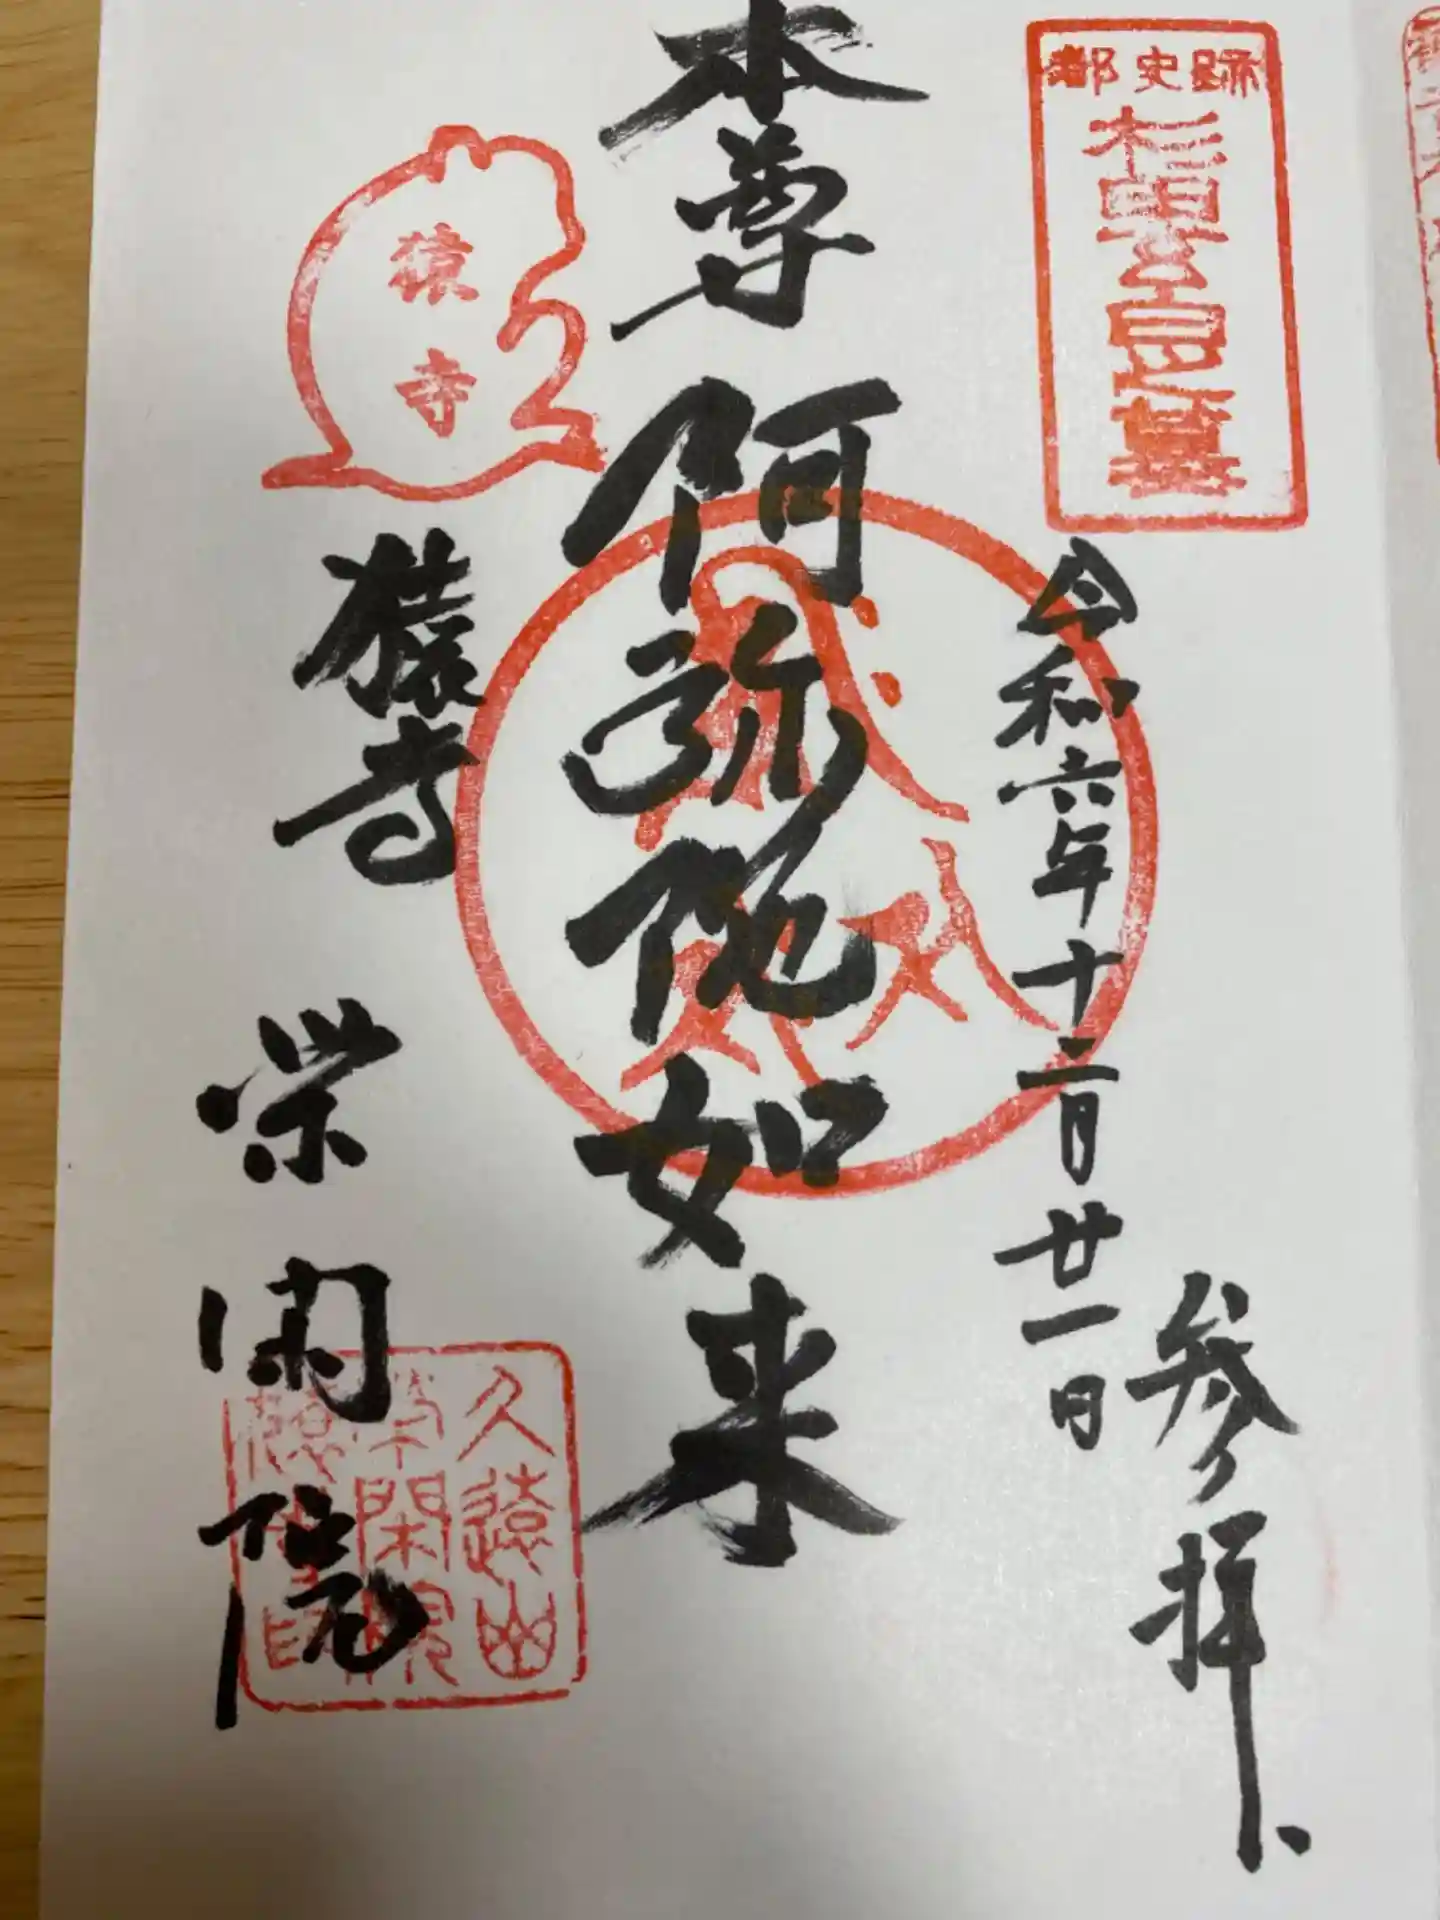 都史跡
杉田玄白墓
令和六年十二月廿一日
参拝
本尊
阿弥陀如来
猿寺
猿寺
栄閑院
久遠山